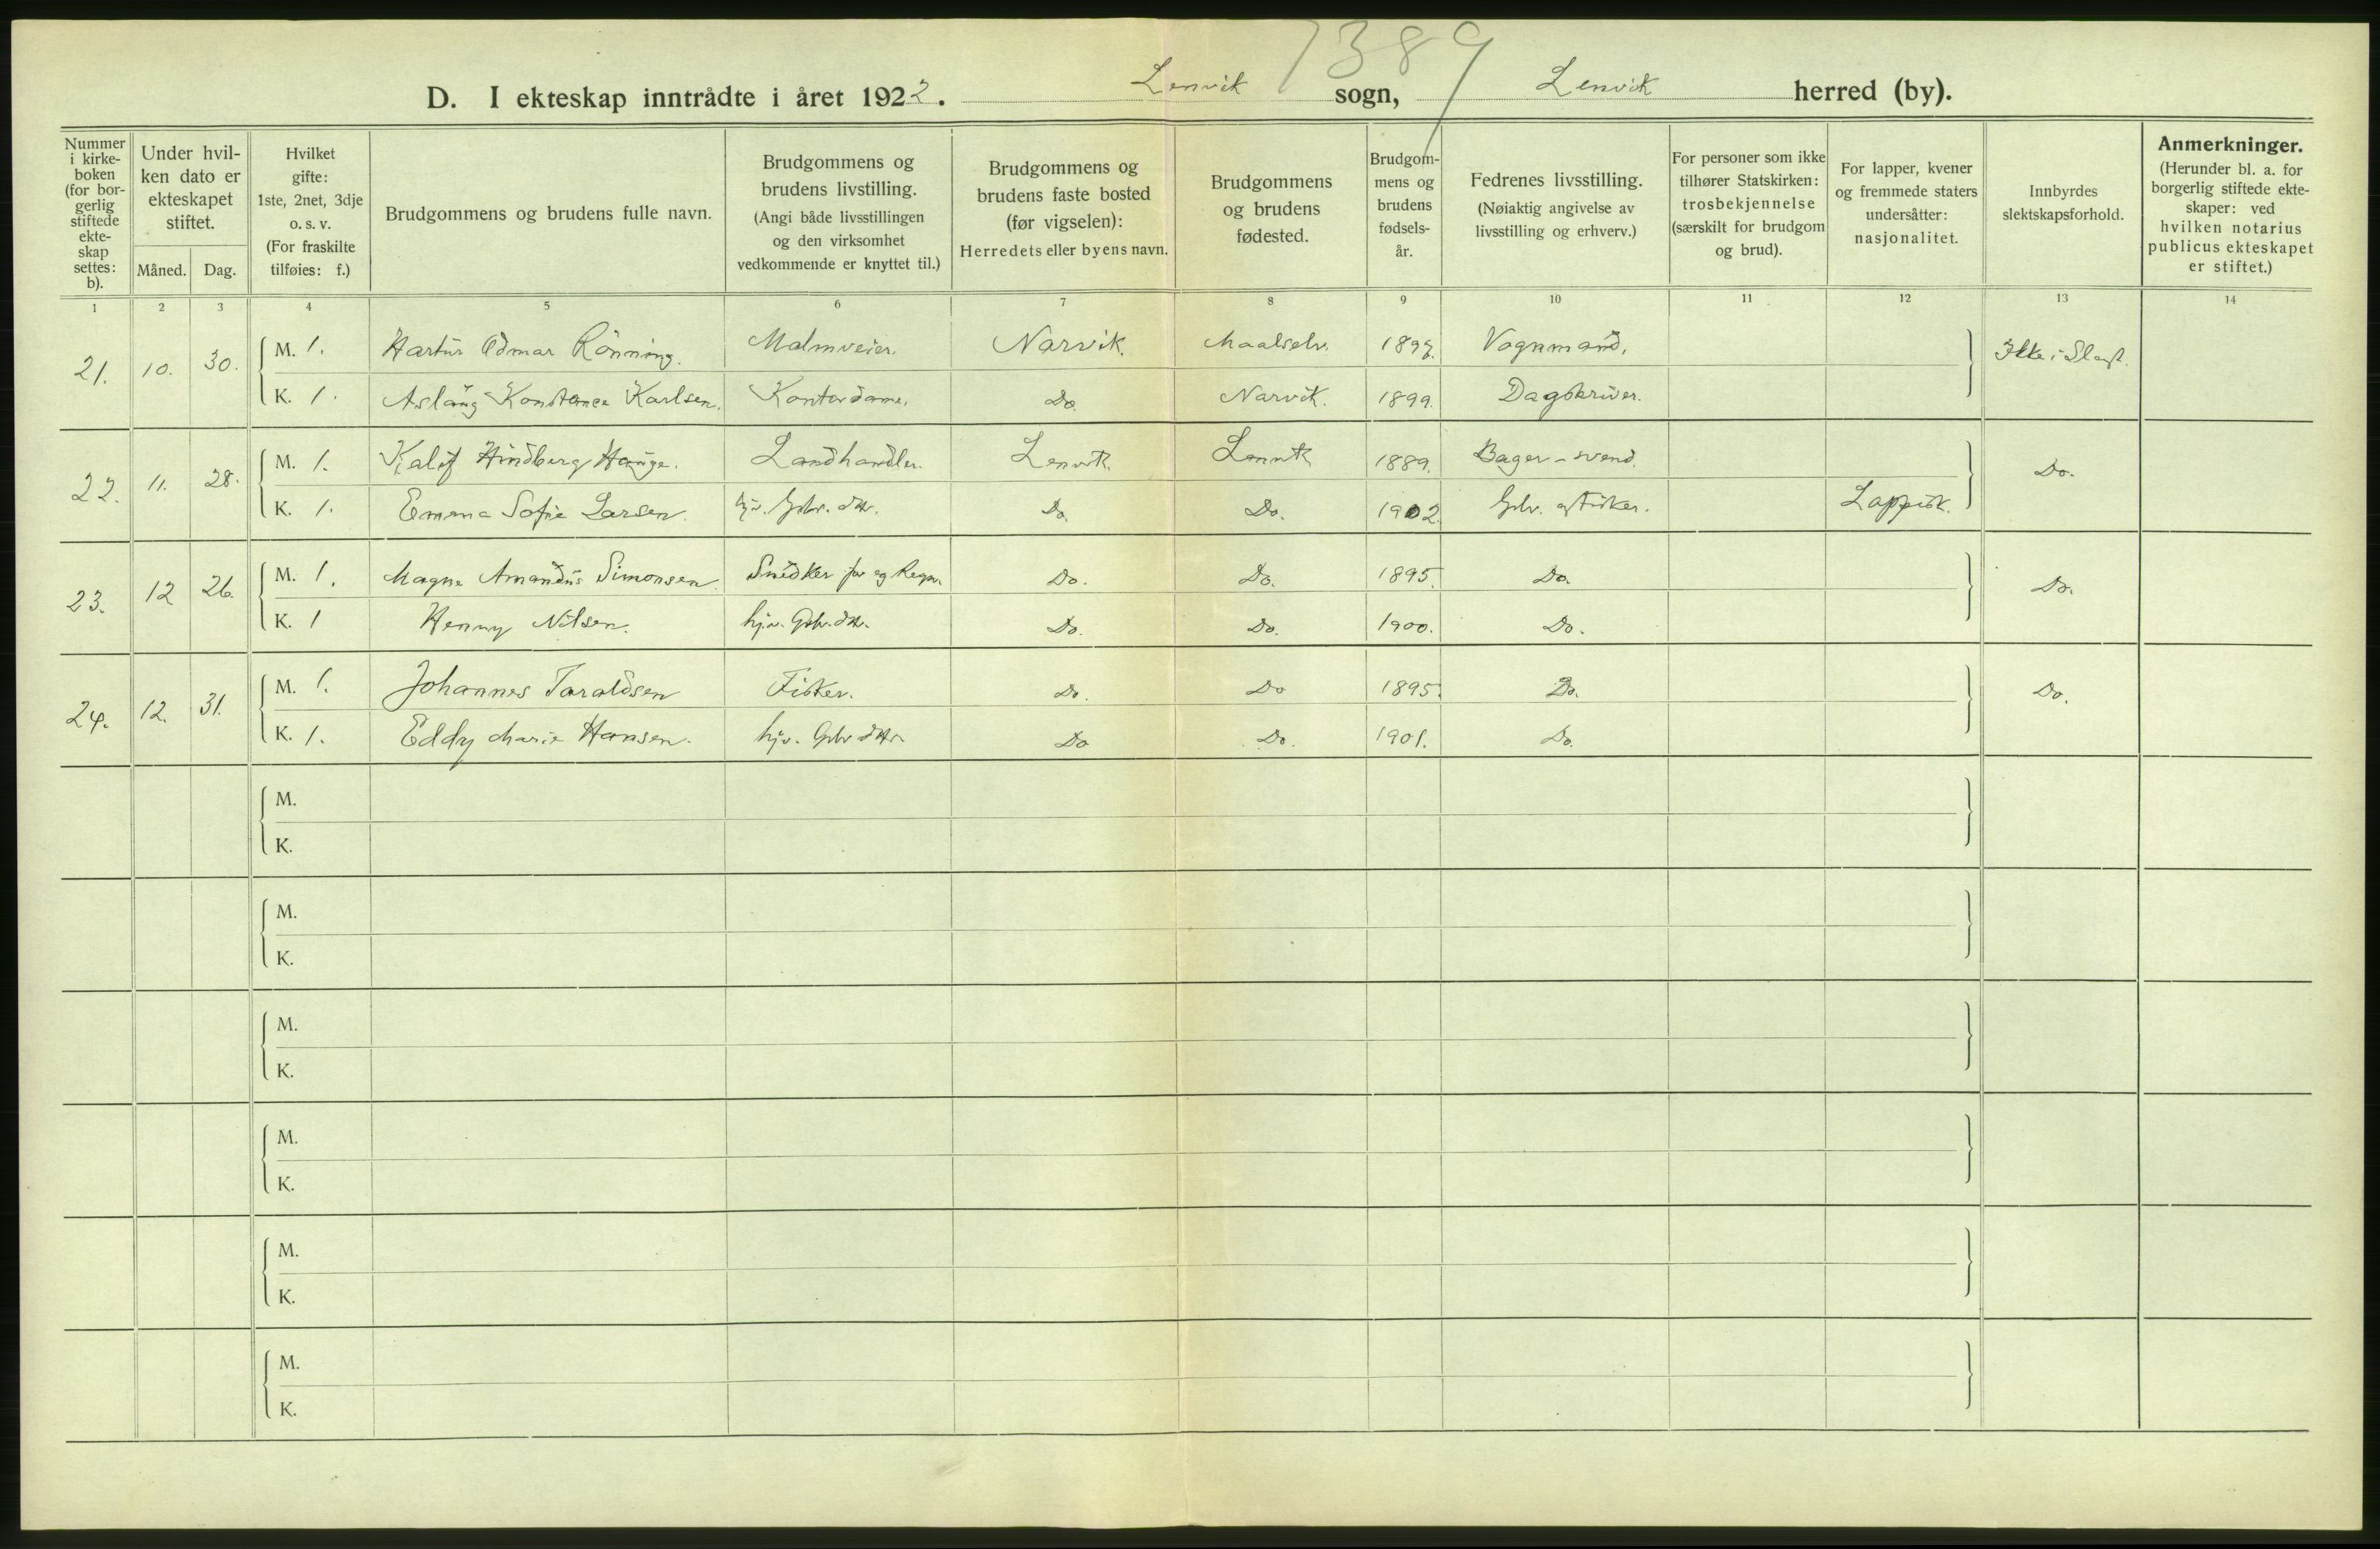 1389
D. I ekteskap inntrådte i året 1922. Lenvik sogn, Lenvik herred (by).
Nummer i kirke-boken (for bor-gerlig stiftede ekte-skap settes: b).
Under hvil-ken dato er ekteskapet stiftet.
Måned. Dag.
Hvilket gifte: 1ste, 2net, 3dje o. s. v. (For fraskilte tilføies: f.)
Brudgommens og brudens fulle navn.
Brudgommens og brudens livstilling. (Angi både livsstillingen og den virksomhet vedkommende er knyttet til.)
Brudgommens og brudens faste bosted (før vigselen): Herredets eller byens navn.
Brudgommens og brudens fødested.
Brudgom-mens og brudens fødsels-år.
Fedrenes livsstilling. (Nøiaktig angivelse av livsstilling og erhverv.)
For personer som ikke tilhører Statskirken: trosbekjennelse (særskilt for brudgom og brud).
For lapper, kvener og fremmede staters undersåtter: nasjonalitet.
Innbyrdes slektskapsforhold.
Anmerkninger. (Herunder bl. a. for borgerlig stiftede ekte-skaper: ved hvilken notarius publicus ekteskapet er stiftet.)
1 2 3 4 5 6 7 8 9 10 11 12 13 14
21. 10. 30. M. 1. Odmar Rönning. Malmveier. Narvik. Maalselv. Vognmand. Ikke i Slegt.
K. 1. Aslaug Konstance Karlsen. Kontordame. Do. Narvik. 1899. Dagskriver.
22. 11. 28. M. 1. Hindberg Hauge. Landhandler. Lenvik Lenvik 1889. Bager-svend. Do.
K. 1. Emma Sofie Larsen. hjv. Gbr. dtr. Do. Do. 1902. Gbr. og Fisker. Lappisk.
23. 12 26. M. 1. Magne Amandus Simonsen Snedker for eg Regn. Do. Do. 1895. Do. Do.
K. 1 Henny Nilsen. hjv. Gbr. dtr. Do. Do. 1900. Do.
24. 12. 31. M. 1. Johannes Taraldsen Fisker. Do. Do 1895. Do. Do.
K. 1. Eddy Marie Hansen. hjv. Gbr dtr. Do Do. 1901. Do.
M.
K.
M.
K.
M.
K.
M.
K.
M.
K.
M.
K.